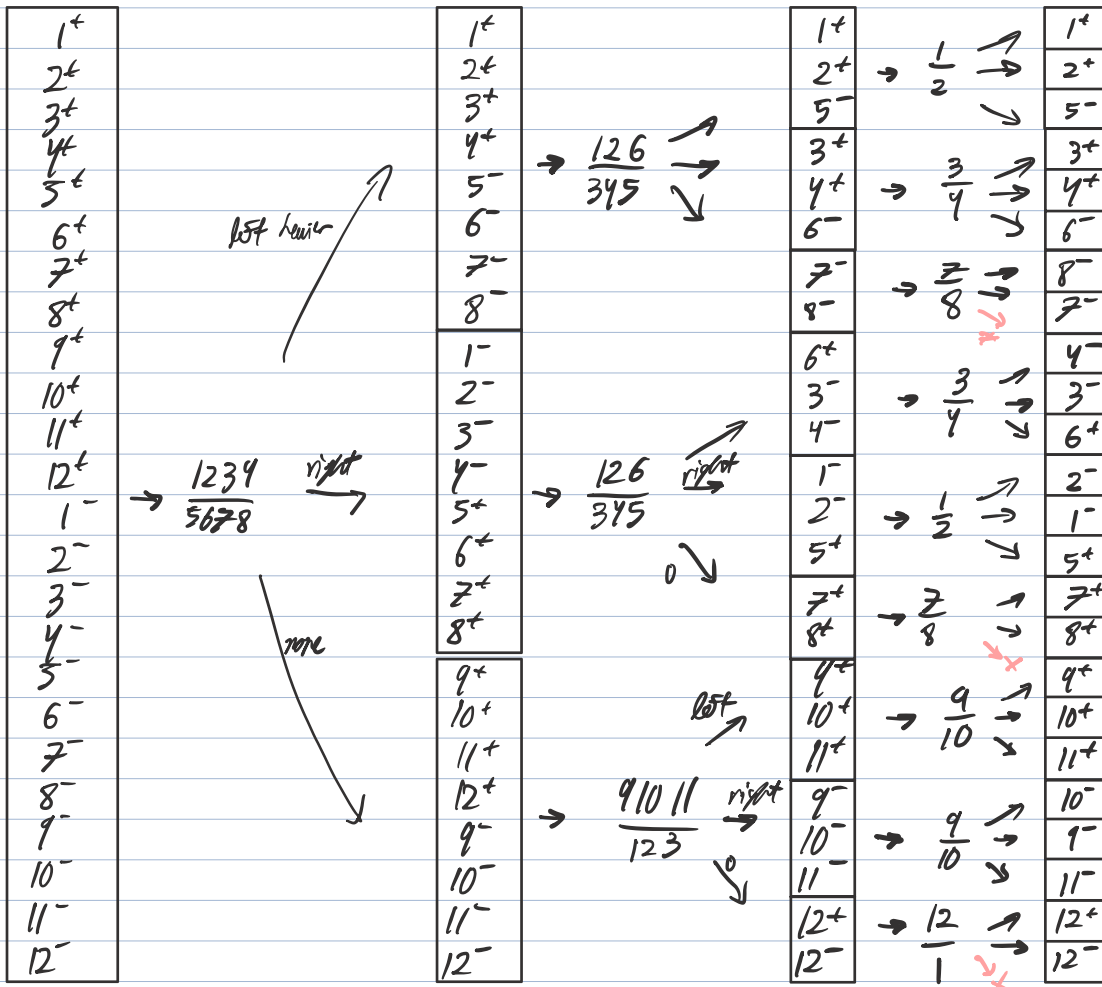 1+
2+
3+
4+
5+
6+
7+
8+
9+
10+
11+
12+
1-
2-
3-
4-
5-
6-
7-
8-
9-
10-
11-
12-
left
1234
5678
right
none
1+
2+
3+
4+
5-
6-
7-
8-
1-
2-
3-
4-
5+
6+
7+
8+
9+
10+
11+
12+
9-
10-
11-
12-
126
345
126
345
right
0
left
9 10 11
123
right
0
1+
2+
5-
3+
4+
6-
7-
8-
6+
3-
4-
1-
2-
5+
7+
8+
9+
10+
11+
9-
10-
11-
12+
12-
1
2
3
4
7
8
3
4
1
2
7
8
9
10
9
10
12
1
1+
2+
5-
3+
4+
6-
8-
7-
4-
3-
6+
2-
1-
5+
7+
8+
9+
10+
11+
10-
9-
11-
12+
12-